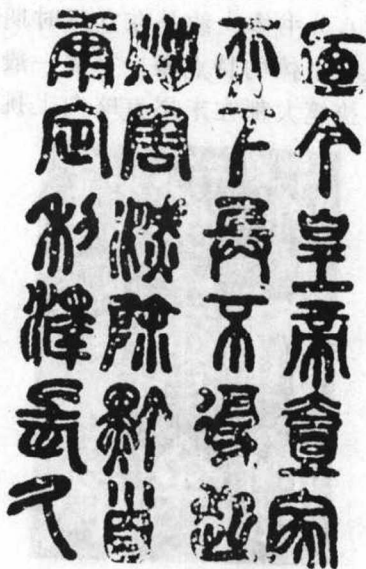 迺今皇帝壹家
天下兵不復起
烖害滅除黔首
康定利澤長久